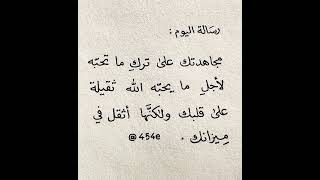 رسَالة اليوم :
مجاهدتك علىٰ تركِ ما تحبّه
لأجلِ ما يحبّه الله ثقيلة
علىٰ قلبك ولكنَّها أثقل في
مِيزانك .
@454e